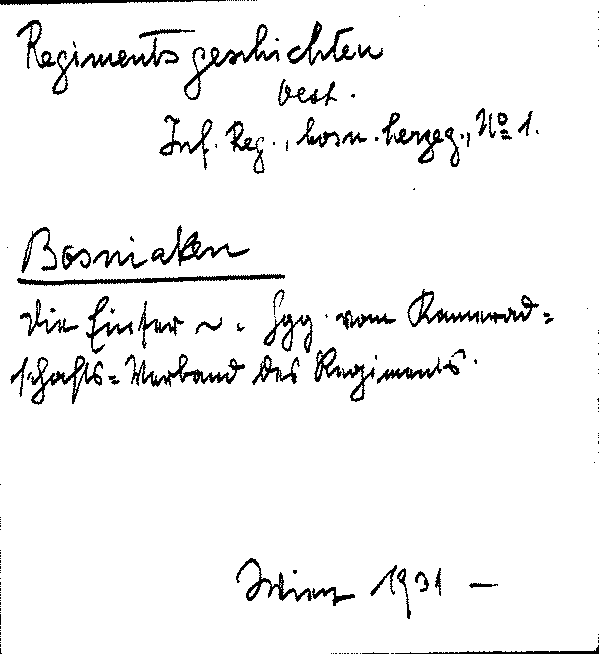 Regimentsgeschichten
oest.
Inf. Reg., bosn. herzeg., No 1.
Bosniaken
Die Einser ~. Hgg. vom Kamerad=
schafts=Verband des Regiments.
Wien 1931 —